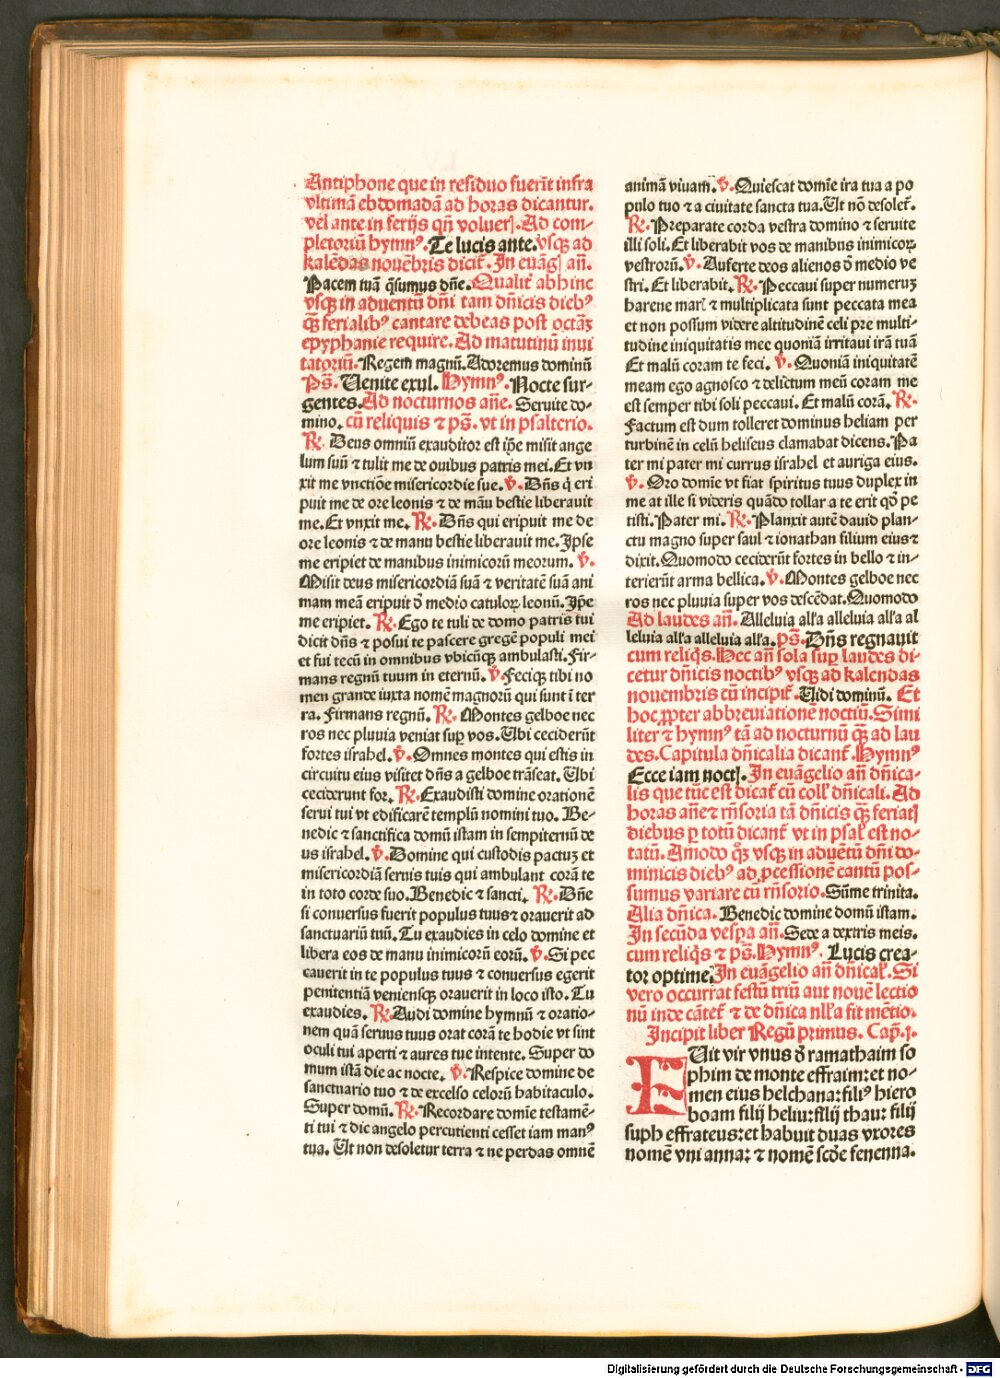 Antiphone que in residuo fuerīt infra
vltimā ebdomadā ad horas dicantur.
vel ante in ferijs qn̄ voluerꝭ. Ad com-
pletoriū hymnꝰ. Te lucis ante. vsqꝫ ad
kalēdas nouēbris dicit᷑. In euāgꝭ an̄.
Pacem tuā q̄sumus dn̄e. Qualit᷑ abhinc
vsqꝫ in aduentū dn̄i tam dn̄icis diebꝰ
qꝫ̄ ferialibꝰ cantare debeas post octāꝫ
epyphanie require. Ad matutinū inui
tatoriū. Regem magnū. Adoremus dominū
Ps̄. Uenite exul. Hymnꝰ. Nocte sur-
gentes. Ad nocturnos an̄e. Seruite do-
mino. cū reliquis ⁊ ps̄. vt in psalterio.
R. Deus omniū exauditor est ip̄e misit ange
lum suū ⁊ tulit me de ouibus patris mei. Et vn
xit me vnctiōe misericordie sue. V. Dn̄s q̇ eri
puit me de ore leonis ⁊ de māu bestie liberauit
me. Et vnxit me. R. Dn̄s qui eripuit me de
ore leonis ⁊ de manu bestie liberauit me. Ipse
me eripiet de manibus inimicorū meorum. V.
Misit deus misericordiā suā ⁊ veritatē suā ani
mam meā eripuit d̄ medio catuloꝝ leonū. Ip̄e
me eripiet. R. Ego te tuli de domo patris tui
dicit dn̄s ⁊ posui te pascere gregē populi mei
et fui tecū in omnibus vbicūqꝫ ambulasti. Fir-
mans regnū tuum in eternū. V. Feciqꝫ tibi no
men grande iuxta nomē magnorū qui sunt ī ter
ra. Firmans regnū. R. Montes gelboe nec
ros nec pluuia veniat suꝑ vos. Ubi ceciderūt
fortes israhel. V. Omnes montes qui estis in
circuitu eius visitet dn̄s a gelboe trāseat. Ubi
ceciderunt for. R. Exaudisti domine orationē
serui tui vt edificarē templū nomini tuo. Be-
nedic ⁊ sanctifica domū istam in sempiternū de
us israhel. V. Domine qui custodis pactuꝫ et
misericordiā seruis tuis qui ambulant corā te
in toto corde suo. Benedic ⁊ sancti. R. Dn̄e
si conuersus fuerit populus tuus ⁊ orauerit ad
sanctuariū tuū. Tu exaudies in celo domine et
libera eos de manu inimicorū eorū. V. Si pec
cauerit in te populus tuus ⁊ conuersus egerit
penitentiā veniensqꝫ orauerit in loco isto. Tu
exaudies. R. Audi domine hymnū ⁊ oratio-
nem quā seruus tuus orat corā te hodie vt sint
oculi tui aperti ⁊ aures tue intente. Super do
mum istā die ac nocte. V. Respice domine de
sanctuario tuo ⁊ de excelso celorū habitaculo.
Super domū. R. Recordare domīe testamē-
ti tui ⁊ dic angelo percutienti cesset iam manꝰ
tua. Ut non desoletur terra ⁊ ne perdas omnē
animā viuam̄. V. Quiescat domīe ira tua a po
pulo tuo ⁊ a ciuitate sancta tua. Ut nō desolet᷑.
R. Preparate corda vestra domino ⁊ seruite
illi soli. Et liberabit vos de manibus inimicoꝝ
vestrorū. V. Auferte deos alienos d̄ medio ve
stri. Et liberabit. R. Peccaui super numeruꝫ
harene marꝭ ⁊ multiplicata sunt peccata mea
et non possum videre altitudinē celi pre multi-
tudine iniquitatis mee quoniā irritaui irā tuā
Et malū coram te feci. V. Quoniā iniquitatē
meam ego agnosco ⁊ delictum meū coram me
est semper tibi soli peccaui. Et malū corā. R.
Factum est dum tolleret dominus heliam per
turbinē in celū heliseus clamabat dicens. Pa
ter mi pater mi currus israhel et auriga eius.
V. Oro domīe vt fiat spiritus tuus duplex in
me at ille si videris quādo tollar a te erit qd̄ pe
tisti. Pater mi. R. Planxit autē dauid plan-
ctu magno super saul ⁊ ionathan filium eius ⁊
dixit. Quomodo ceciderūt fortes in bello ⁊ in-
terierūt arma bellica. V. Montes gelboe nec
ros nec pluuia super vos descēdat. Quomodo
Ad laudes an̄. Alleluia all'a alleluia all'a al
leluia all'a alleluia all'a. ps̄. Dn̄s regnauit
cum reliq̇s. Hec an̄ sola suꝑ laudes di-
cetur dn̄icis noctibꝰ vsqꝫ ad kalendas
nouembris cū incipit᷑. Uidi dominū. Et
hoc ꝓpter abbreuiationē noctiū. Simi
liter ⁊ hymnꝰ tā ad nocturnū qꝫ̄ ad lau
des. Capitula dn̄icalia dicant᷑. Hymnꝰ
Ecce iam noctꝭ. In euāgelio an̄ dn̄ica-
lis que tūc est dicat᷑ cū coll' dn̄icali. Ad
horas an̄e ⁊ rn̄soria tā dn̄icis qꝫ̄ feriatꝭ
diebus ꝑ totū dicant᷑ vt in psal' est no-
tatū. Amodo qꝫ̇ vsqꝫ in aduētū dn̄i do-
minicis diebꝰ ad ꝓcessionē cantū pos-
sumus variare cū rn̄sorio. Sūme trinita.
Alia dn̄ica. Benedic domine domū istam.
In secūda vespa an̄. Sede a dextris meis.
cum reliq̇s ⁊ ps̄. Hymnꝰ. Lucis crea-
tor optime. In euāgelio an̄ dn̄ical'. Si
vero occurrat festū triū aut nouē lectio
nū inde cātet᷑ ⁊ de dn̄ica nll'a fit mētio.
Incipit liber Regū primus. Cap̄. j.
FUit vir vnus d̄ ramathaim so
phim de monte effraim: et no-
men eius helchana: filiꝰ hiero
boam filij heliu: filij thau: filij
suph effrateus: et habuit duas vxores
nomē vni anna: ⁊ nomē scd̄e fenenna.
Digitalisierung gefördert durch die Deutsche Forschungsgemeinschaft - DFG